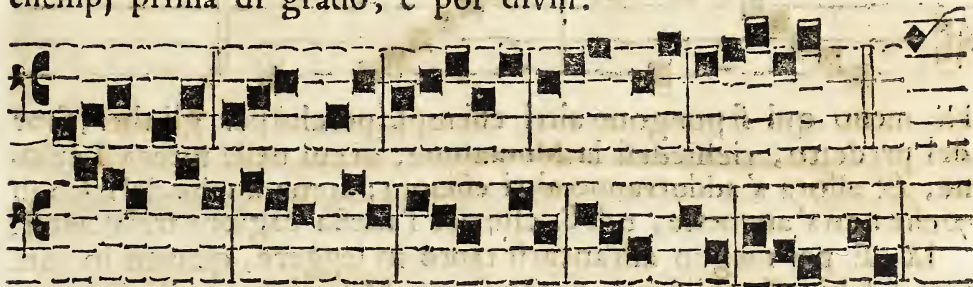 esempj prima di grado, e poi divisi.